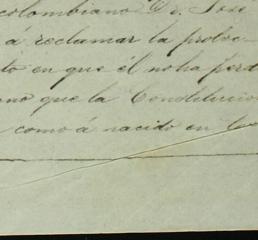 colombiano Sr. José
á reclamar la protec
to en que él no ha perd
ano que la Constitucio
como á nacido en